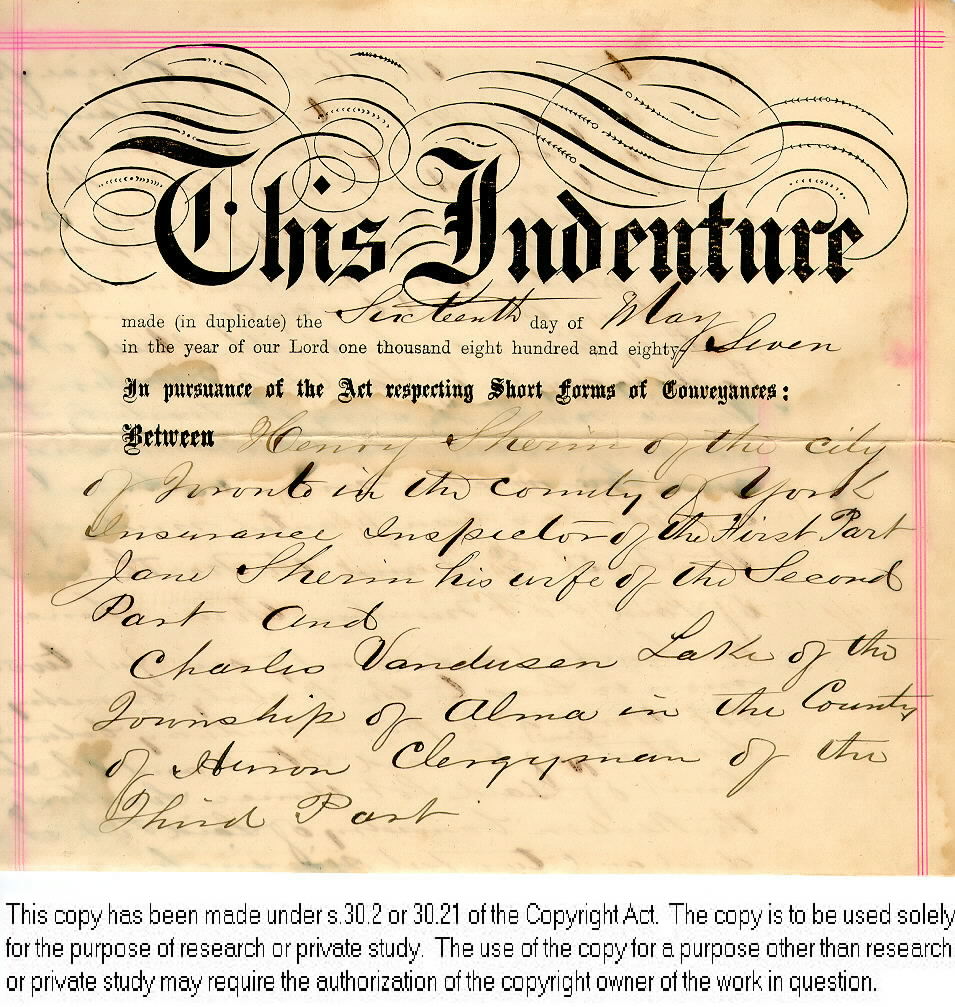 This Indenture
made (in duplicate) the Sixteenth day of May
in the year of our Lord one thousand eight hundred and eighty Seven
In pursuance of the Act respecting Short Forms of Conveyances:
Between Henry Sherin of the city
of Toronto in the county of York
Insurance Inspector of the First Part
Jane Sherin his wife of the Second
Part And
Charles Vandusen Lake of the
Township of Alma in the County
of Huron Clergyman of the
Third Part
This copy has been made under s.30.2 or 30.21 of the Copyright Act. The copy is to be used solely
for the purpose of research or private study. The use of the copy for a purpose other than research
or private study may require the authorization of the copyright owner of the work in question.